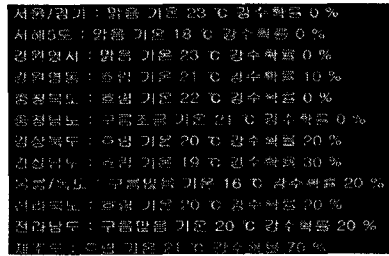 서울/경기 : 맑음 기온 23 ℃ 강수확률 0 %
서해5도 : 맑음 기온 18 ℃ 강수확률 0 %
강원영서 : 맑음 기온 23 ℃ 강수확률 0 %
강원영동 : 흐림 기온 21 ℃ 강수확률 10 %
충청북도 : 흐림 기온 22 ℃ 강수확률 0 %
충청남도 : 구름조금 기온 21 ℃ 강수확률 0 %
경상북도 : 흐림 기온 20 ℃ 강수확률 20 %
경상남도 : 흐림 기온 19 ℃ 강수확률 30 %
울릉/독도 : 구름많음 기온 16 ℃ 강수확률 20 %
전라북도 : 흐림 기온 20 ℃ 강수확률 20 %
전라남도 : 구름많음 기온 20 ℃ 강수확률 20 %
제주도 : 흐림 기온 21 ℃ 강수확률 70 %